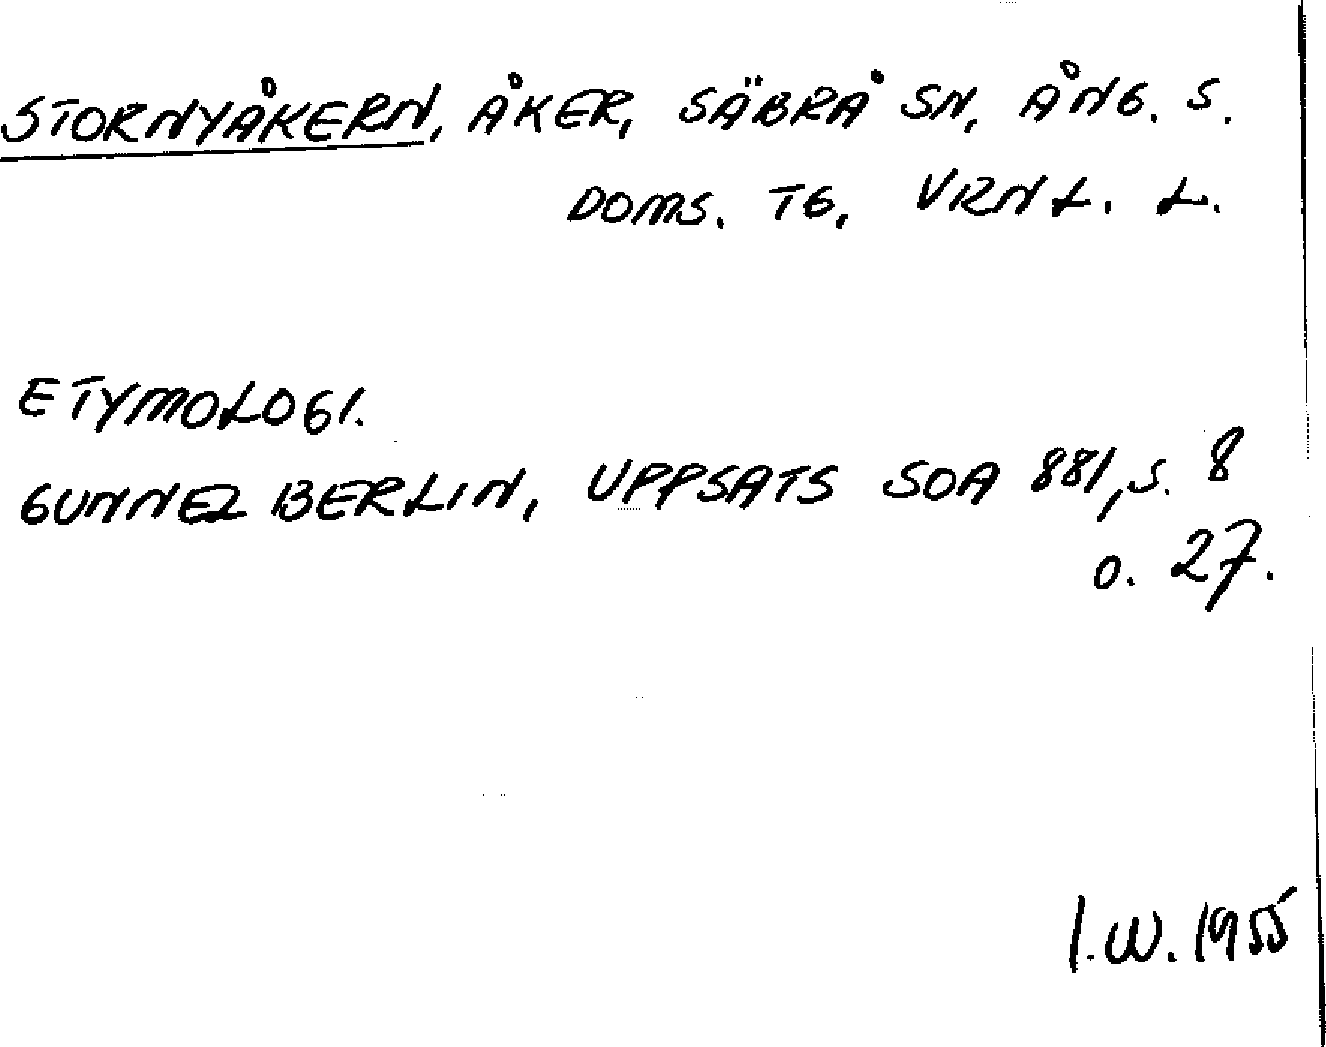 STORNYÅKERN, ÅKER, SÄBRÅ SN, ÅNG. S.
DOMS. TG, VRNL. L.
ETYMOLOGI.
GUNNEL BERLIN, UPPSATS SOA 881, S. 8
O. 27.
I.W. 1955